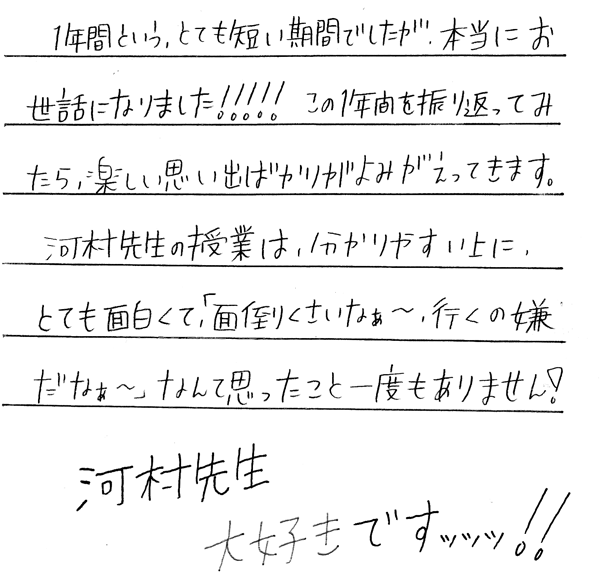 1年間という、とても短い期間でしたが、本当にお
世話になりました!!!!! この1年間を振り返ってみ
たら、楽しい思い出ばかりがよみがえってきます。
河村先生の授業は、分かりやすい上に、
とても面白くて、「面倒くさいなぁ〜、行くの嫌
だなぁ〜」なんて思ったこと一度もありません!
河村先生
大好きですッッッ!!